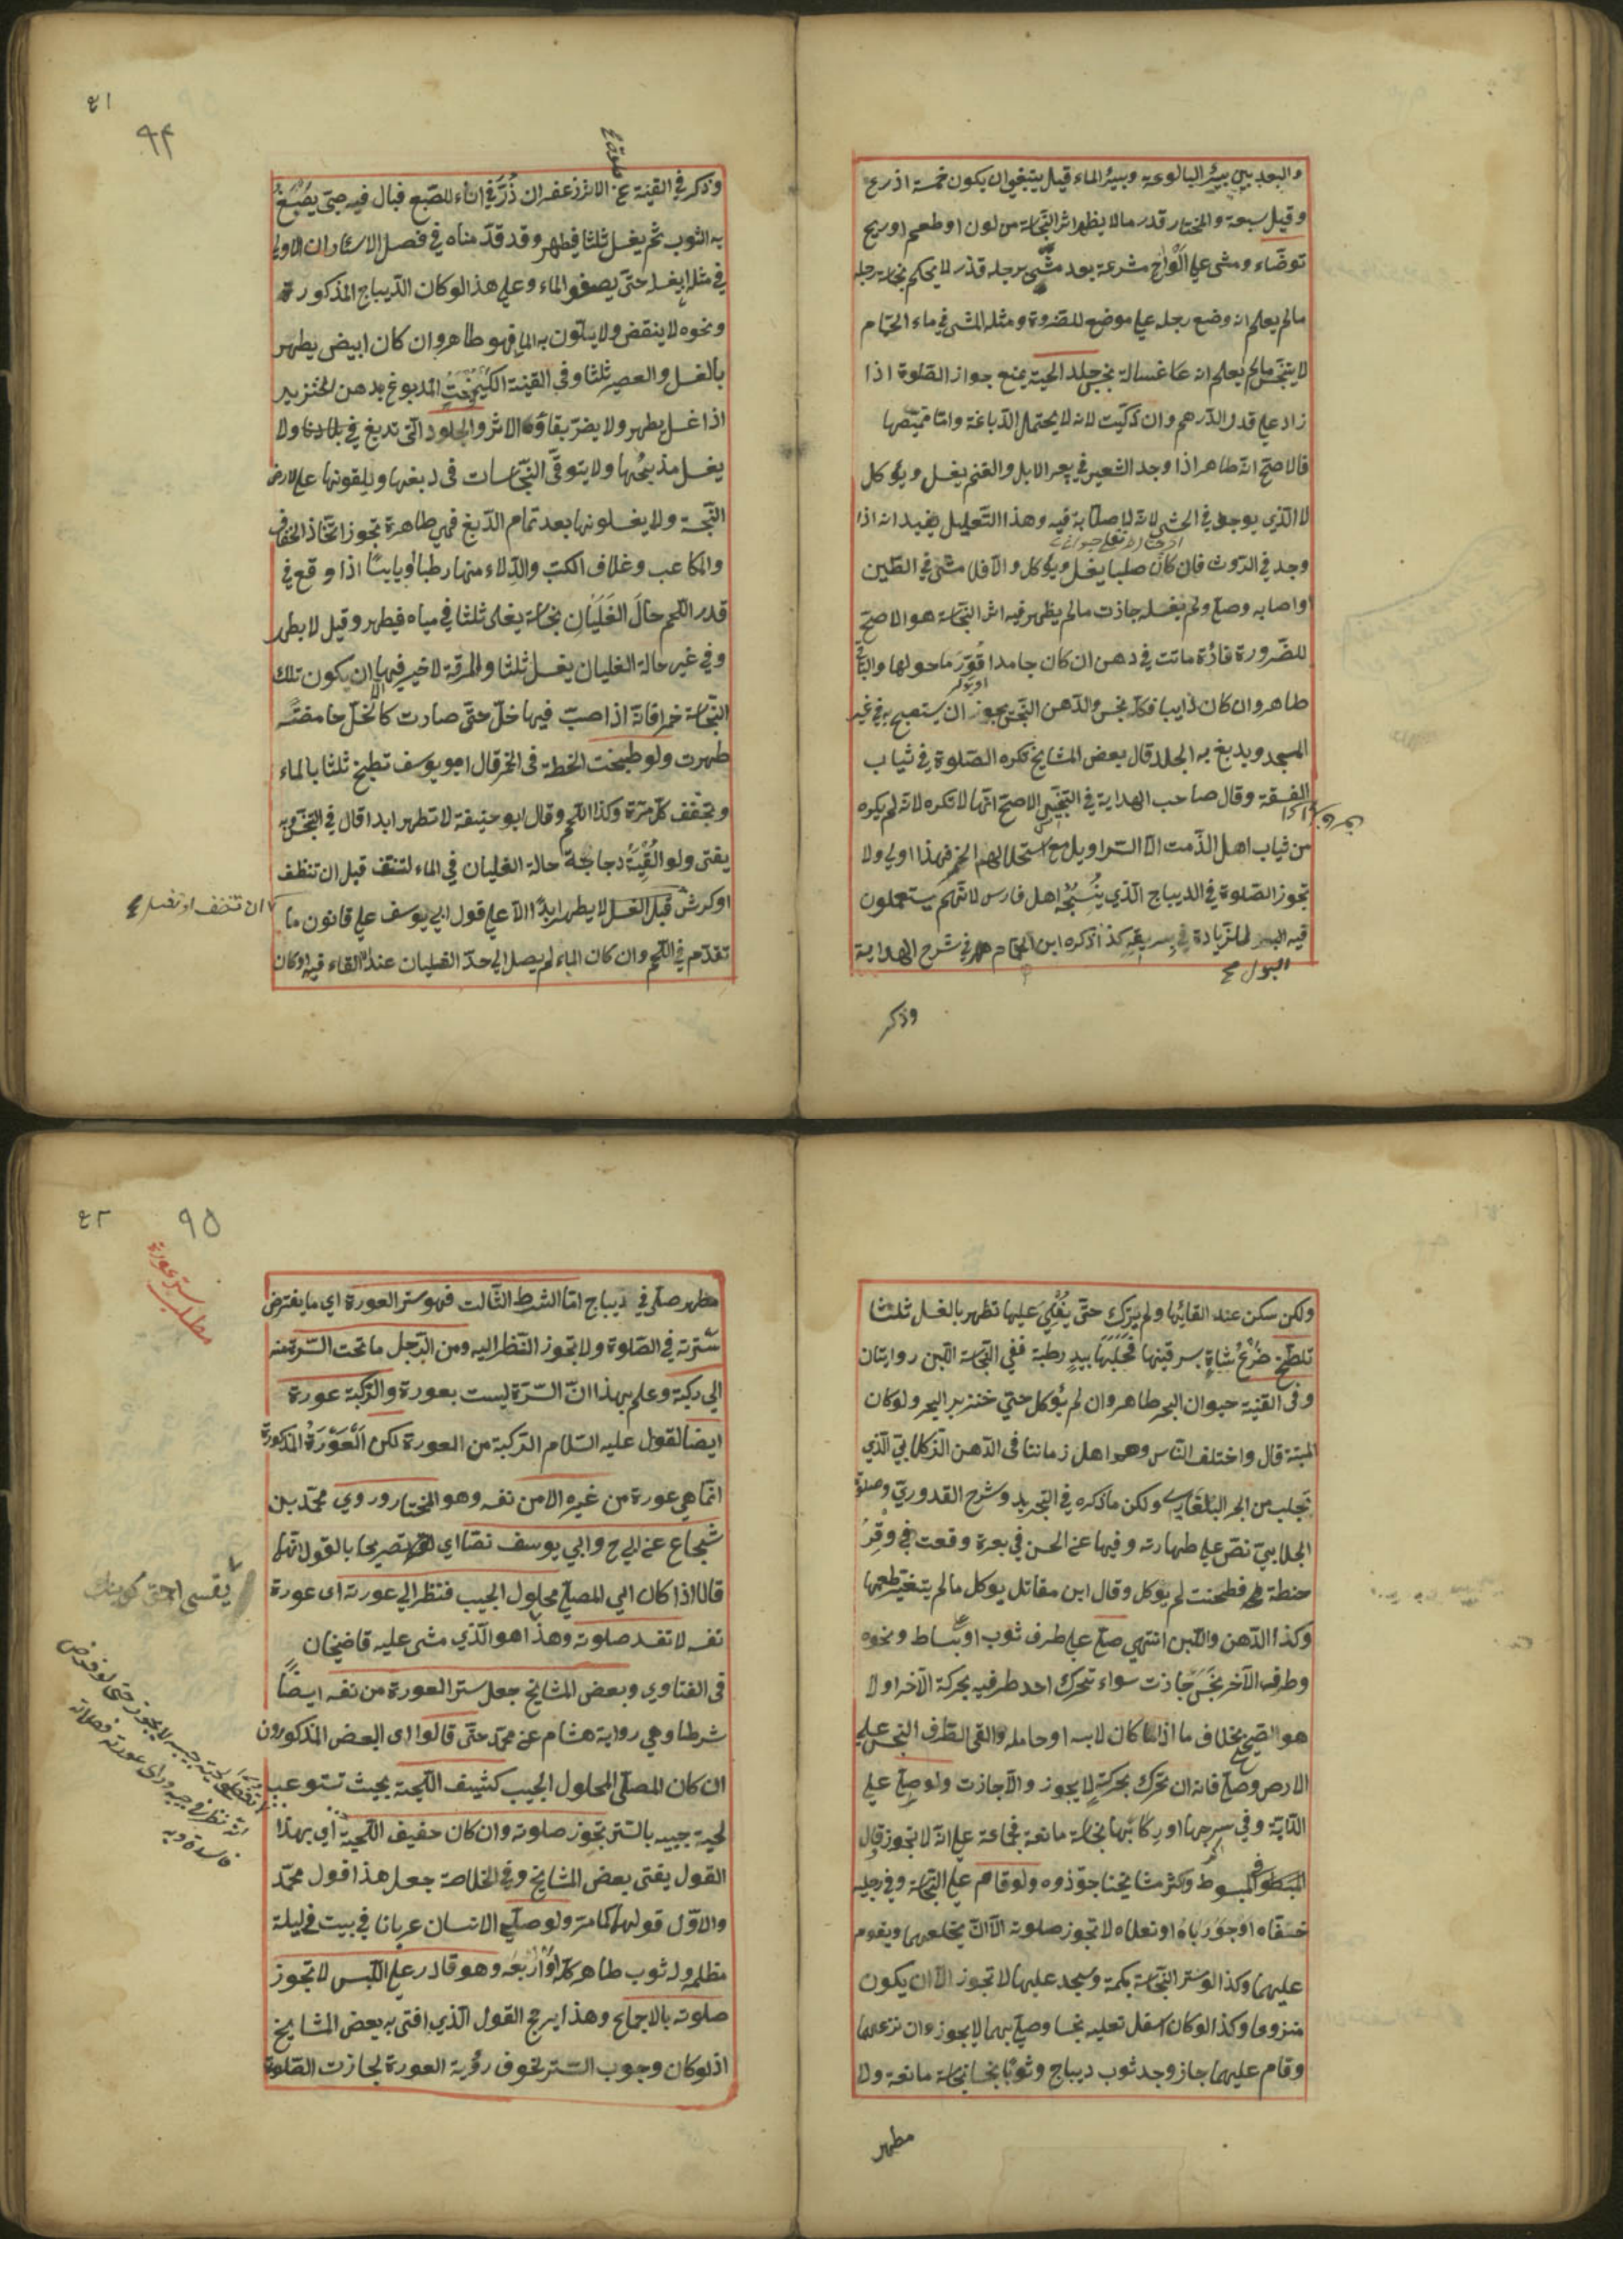 والبعد بين بيئر البالوعة وبيئر الماء قيل ينبغي ان يكون خمسة اذرع
وقيل سبعة والمختار قدر مالا يظهر اثر النجاسة من لون او طعم او ريح
توضاء ومشى علي الواح مشرعة بعد مشى برجله قذر لا يحكم بنجاسة رجله
مالم يعلم انه وضع رجله علي موضع للضرورة ومثله المشى في ماء الحمام
لا يتنجس مالم يعلم انه غسالة نجس جلد الحية يمنع جواز الصلوة اذا
زاد علي قدر الدرهم وان ذكيت لانه لا يحتمل الدباغة واما قميصها
فالاصح انه طاهر اذا وجد الشعير في بعر الابل والغنم يغسل ويؤكل
لا الذي يوجد في الحشى لانه لا صلابة فيه وهذا التعليل يفيد انه اذا
وجد في الروث فان كان صلبا يغسل ويؤكل والا فلا مشى في الطين
او اصابه وصلى ولم يغسله جازت مالم يظهر فيه اثر النجاسة هو الاصح
للضرورة فارة ماتت في دهن ان كان جامدا قور ما حولها والباقي
طاهر وان كان ذايبا فكله نجس والدهن النجس يجوز ان يستصبح به في غير
المسجد ويدبغ به الجلد قال بعض المشايخ تكره الصلوة في ثياب
الفسقة وقال صاحب الهداية في التجنيس الاصح انها لا تكره لانه لم يكره
من ثياب اهل الذمت الا السراويل مع استحلالهم الخمر فهذا اولي ولا
تجوز الصلوة في الديباج الذي ينسجه اهل فارس لانهم يستعملون
فيه البول للزيادة في بريقه كذا ذكره ابن الهمام في شرح الهداية
البول
وذكر
٤١
٩٤
وذكر في القنية الارز زعفران ذر في اناء للصبغ فبال فيه صبى يصبغ
به الثوب ثم يغسل ثلثا فيطهر وقد قدمناه في فصل الاسئار ان الاولي
في مثله يغسل حتى يصفو الماء وعلي هذا لو كان الديباج المذكورة
ونحوه لا ينقض ولا يتلون به الماء فهو طاهر وان كان ابيض يطهر
بالغسل والعصير ثلثا وفي القنية الكيمخت المدبوغ بدهن الخنزير
اذا غسل يطهر ولا يضر بقاؤه الاثر والجلود التى تدبغ في بلادنا ولا
يغسل مذبحها ولا يتوقى النجاسات فى دبغها ويلقونها علي الارض
النجسة ولا يغسلونها بعد تمام الدبغ فهي طاهرة تجوز اتخاذ الخفاف
والمكاعب وغلاف الكتب والدلاء منها رطبا ويابسا اذا وقع في
قدر اللحم حال الغليان نجاسة يغلى ثلثا في مياه فيطهر وقيل لا يطهر
وفي غير حالة الغليان يغسل ثلثا والمرقة لا خير فيها الا ان يكون تلك
النجاسة خمرا فانه اذا صب فيها خل حتى صارت كالخل حامضة
طهرت ولو طبخت الحنطة فى الخمر قال ابو يوسف تطبخ ثلثا بالماء
وتجفف كل مرة وكذا اللحم وقال ابو حنيفة لا تطهر ابدا قال في التجنيس وبه
يفتى ولو القيت دجاجة حالة الغليان في الماء لتنتف قبل ان تنظف
او كرش قبل الغسل لا يطهر ابدا الا علي قول ابي يوسف علي قانون ما
تقدم في اللحم وان كان الماء لم يصل الي حد الغليان عند القاء فيه او كان
ولكن سكن عند القائها ولم يترك حتى يغلي عليها تطهر بالغسل ثلثا
تلطخ ضرع شاة بسرقينها فحلبها بيد رطبة ففي النجاسة اللبن روايتان
وفى القنية حيوان البحر طاهر وان لم يؤكل حتي خنزير البحر ولو كان
الميتة قال واختلف الناس وهو اهل زماننا فى الدهن الزكلابي الذي
تجلب من البحر البلغاري ولكن ما ذكره في التجريد وشرح القدوري وصلوة
الجلابي نص علي طهارته وفيها عن الحسن في بعرة وقعت في وقر
حنطة فطحنت لم يوكل وقال ابن مقاتل يوكل مالم يتغير طعمها
وكذا الدهن واللبن انتهي صلى علي طرف ثوب او بساط ونحوه
وطرفه الآخر نجس جازت سواء تحرك احد طرفيه بحركة الآخر اولا
هو الصحيح بخلاف ما اذا كان لابسه او حامله والقى الطرف النجس علي
الارض وصلى فانه ان تحرك بحركته لا يجوز والا جازت ولو صلى علي
الدابة وفي سرجها او ركابها نجاسة مانعة فجماعة علي انه لا تجوز قال
في المبسوط واكثر مشايخنا جوزوه ولو قام علي النجاسة وفي رجليه
خفاه او جورباه او نعلاه لا تجوز صلوته الا ان يخلعهما ويقوم
عليهما وكذا لو ستر النجاسة بكمه وسجد عليها لا تجوز الا ان يكون
منزوعا وكذا لو كان اسفل نعليه نجسا وصلى بهما لا يجوز وان نزعهما
وقام عليهما جاز وجد ثوب ديباج وثوبا نجسا نجاسة مانعة ولا
مطهر
٤٢
٩٥
مطلب ستر عورة
مطهر صلى في ديباج اما الشرط الثالت فهو ستر العورة اي ما يفترض
سترته في الصلوة ولا تجوز النظر اليه ومن الرجل ما تحت السرة منه
الي ركبة وعلم بهذا ان السرة ليست بعورة والركبة عورة
ايضا لقول عليه السلام الركبة من العورة لكن العورة المذكورة
انما هي عورة من غيره الا من نفسه وهو المختار وروي محمد بن
شجاع عن ابي ح وابي يوسف نصا اي تصريحا بالقول انهما
قالا اذا كان اي المصلي محلول الجيب فنظر الي عورته اى عورة
نفسه لا تفسد صلوته وهذا هو الذي مشى عليه قاضيخان
فى الفتاوي وبعض المشايخ جعل ستر العورة من نفسه ايضا
شرطا وهي رواية هشام عن محمد حتى قالوا اى البعض المذكورون
ان كان للمصلى المحلول الجيب كثيف اللحية بحيث تستوعب
لحية جيبه بالستر تجوز صلوته وان كان خفيف اللحية اي بهذا
القول يفتى بعض المشايخ وفي الخلاصة جعل هذا قول محمد
والاول قولهما كما مر ولو صلي الانسان عريانا في بيت في ليلة
مظلمه وله ثوب طاهر كله او اربعه وهو قادر علي اللبس لا تجوز
صلوته بالاجماع وهذا يرجح القول الذي افتى به بعض المشايخ
اذ لو كان وجوب الستر لخوف رؤية العورة لجازت الصلوة